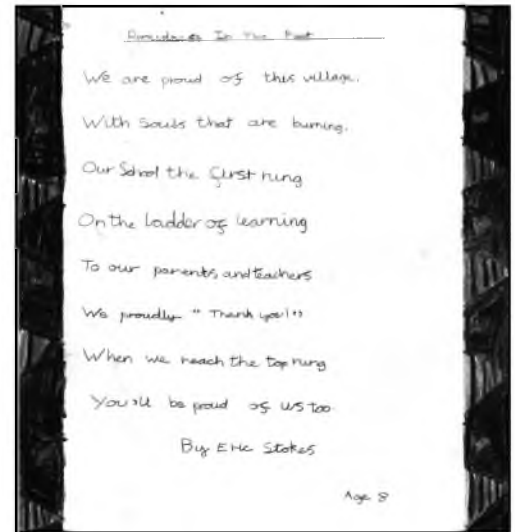 In The Past
We are proud of this village.
With Souls that are burning.
Our School the first rung
On the ladder of learning
To our parents, and teachers
We proudly " Thank you!"
When we reach the top rung
You'll be proud of us too.
By Eric Stokes
Age 8